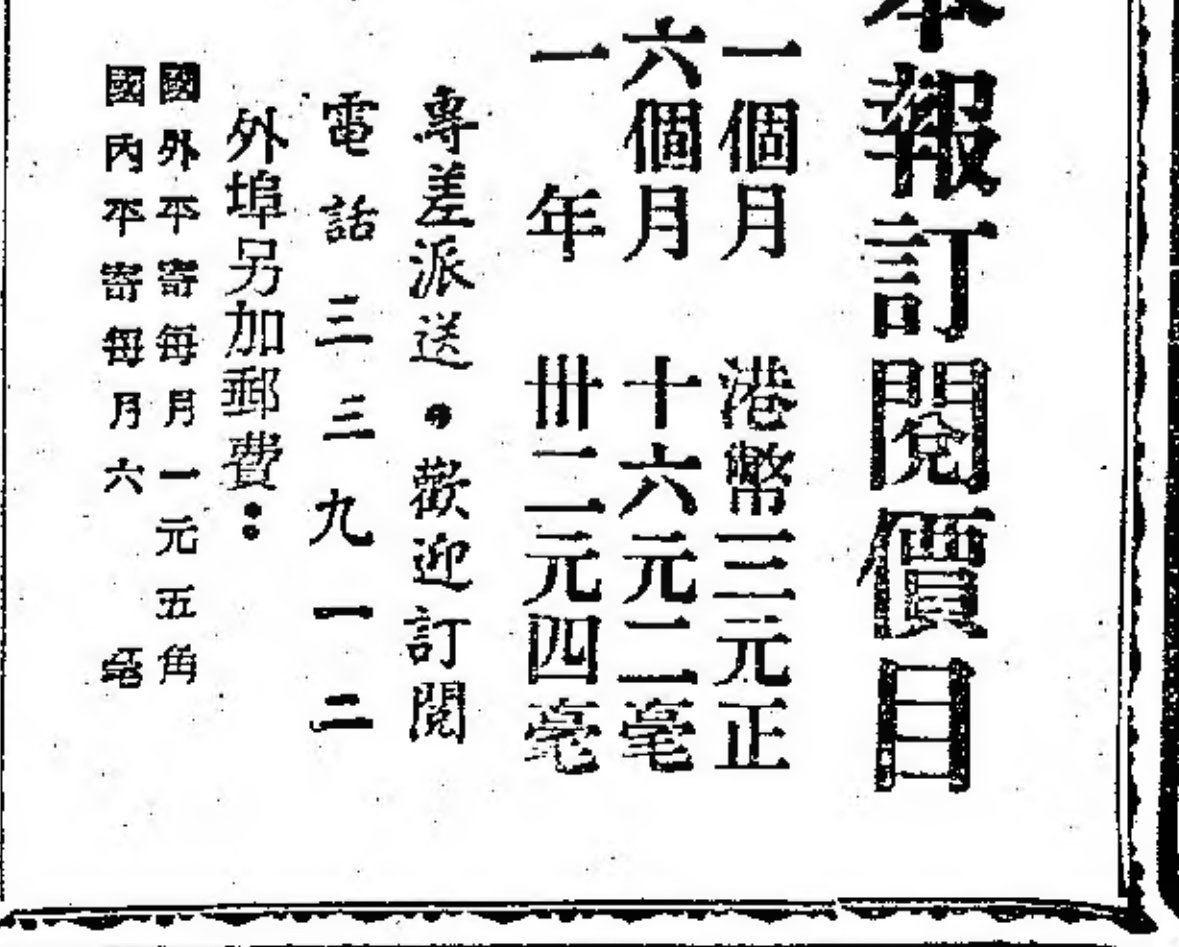 本報訂閱價目
一個月 港幣三元正
六個月 十六元二毫
一 年 卅二元四毫
專差派送•歡迎訂閱
電話三三九一二
外埠另加郵費：
國外平寄每月一元五角
國內平寄每月六 毫